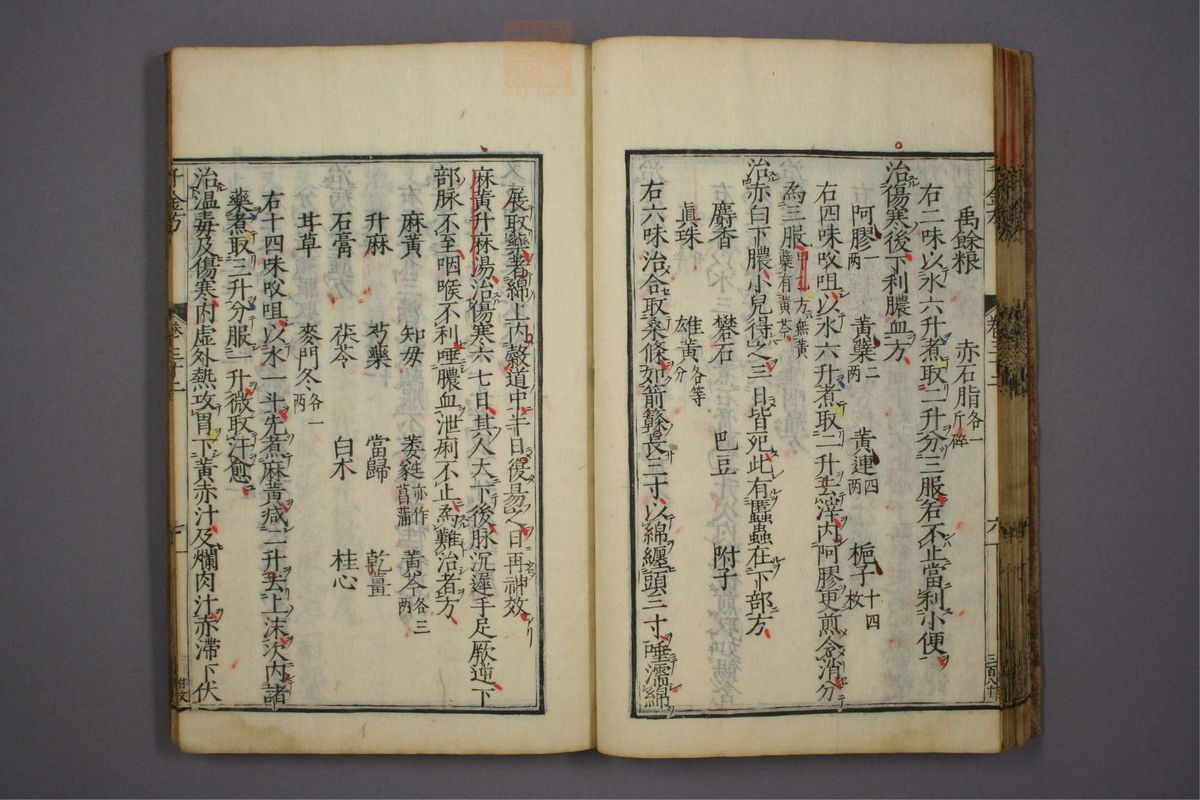 禹餘粮 赤石脂各一斤碎
右二味以水六升煮取二升分三服若不止當利小便
治傷寒後下利膿血方
阿膠一兩 黃蘗二兩 黃連四兩 梔子十四枚
右四味㕮咀以水六升煮取二升去滓內阿膠更煎令消分
為三服
藥有黃芩
治赤白下膿小兒得之三日皆死此有䘌蟲在下部方
麝香 礬石 巴豆 附子
真珠 雄黃各等分
右六味治合取桑條如箭簳長三寸以綿纏頭三寸唾濡綿
展取藥著綿上內穀道中半日復易之日再神效
麻黃升麻湯治傷寒六七日其人大下後脉沉遲手足厥逆下
部脉不至咽喉不利唾膿血泄痢不止為難治者方
麻黃 知母 萎蕤亦作菖蒲 黃芩各三兩
升麻 芍藥 當歸 乾薑
石膏 茯苓 白术 桂心
甘草 麥門冬各一兩
右十四味㕮咀以水一斗先煮麻黃減二升去上沫次內諸
藥煮取三升分服一升微取汗愈
治溫毒及傷寒內虛外熱攻胃下黃赤汁及爛肉汁赤滯下伏